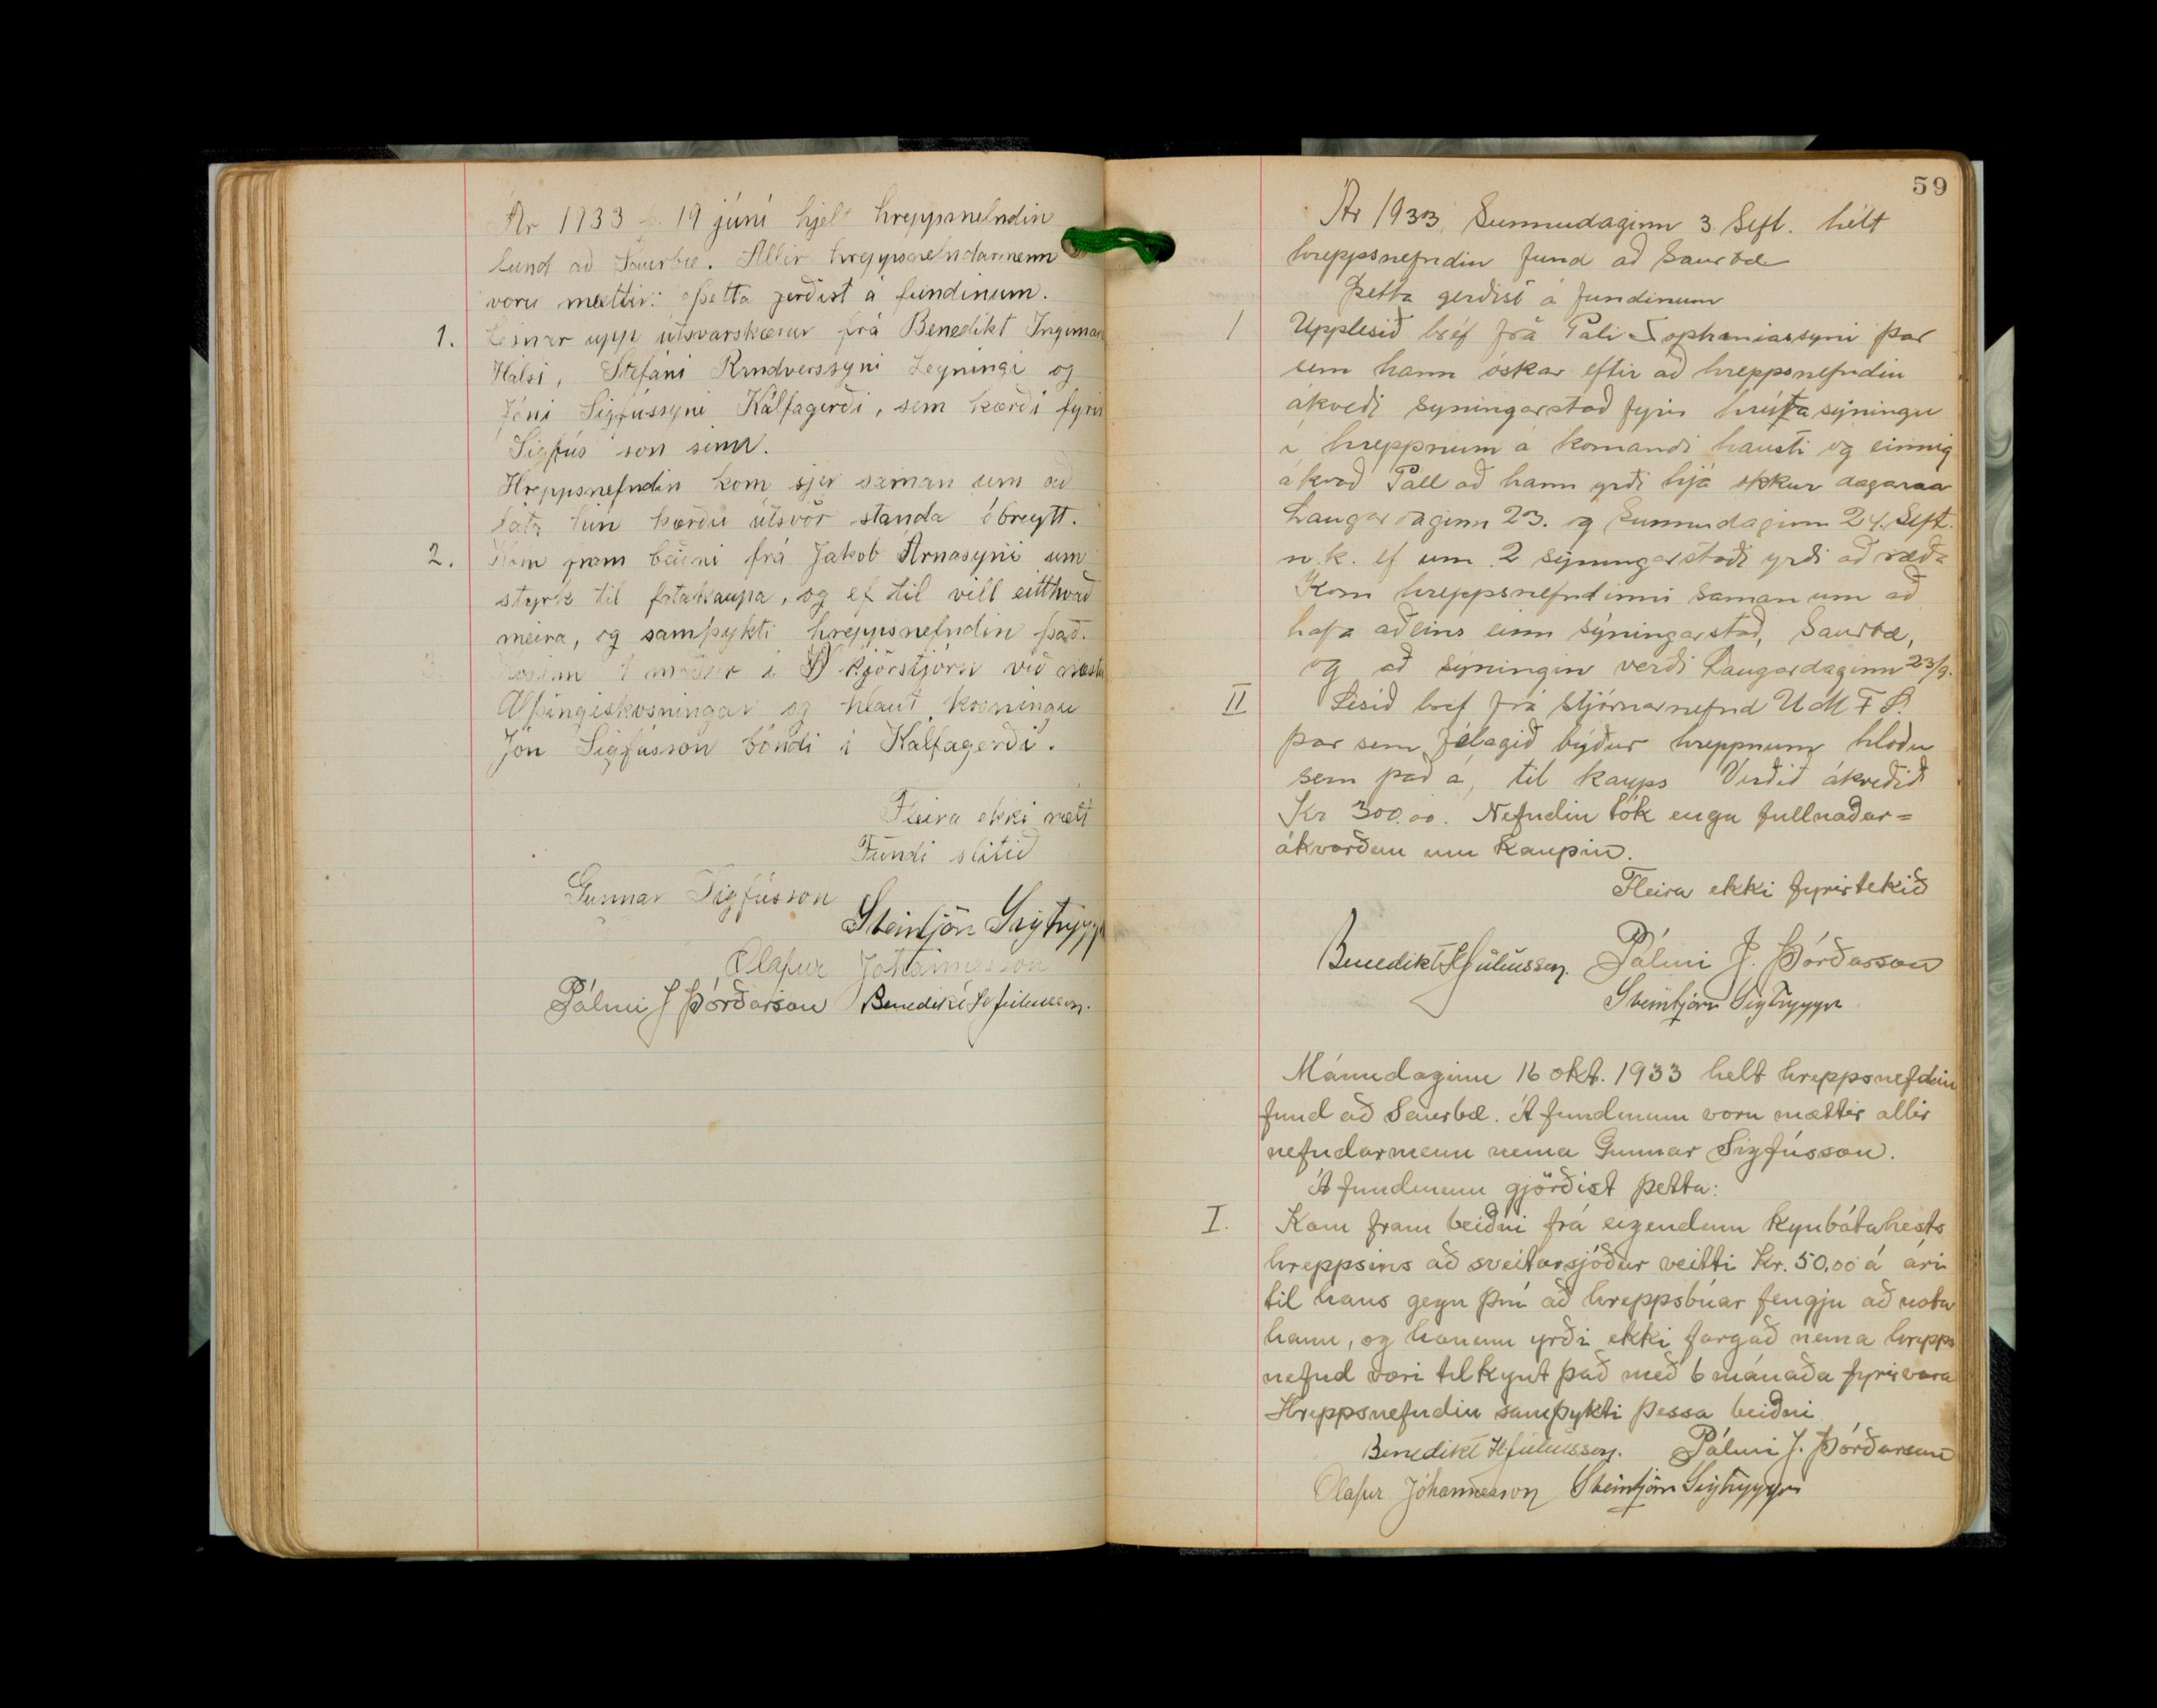 Ár 1933 19 júní hjelt hreppsnefndin
fund að Saurbæ. Allir hreppsnefndarmenn
voru mættir. Þetta gerðist á fundinum.
1. Lesnar upp útsvarskærur frá Benedikt Ingimar
Hálsi, Stefáni Randverssyni Leyningi og
Jóni Sigfússyni Kálfagerði, sem kærði fyrir
Sigfús son sinn.
Hreppsnefndin kom sjer saman um að
láta hin kærðu útsvör standa óbreytt.
2. Kom fram beiðni frá Jakob Árnasyni um
styrk til fatakaupa, og ef til vill eitthvað
meira, og samþykti hreppsnefndin það.
Kosinn 1 maður í kjörstjórn við næstu
Alþingiskosningar og hlaut kosningu
Jón Sigfússon bóndi í Kálfagerði.
Fleira ekki rætt
Fundi slitið
Gunnar Sigfússon
Steinþjón Sigtrygg
Ólafur Jóhannesson
Pálmi J Þórðarson Benedikt H Júlíusson.
59
Ár 1933, Sunnudaginn 3. Sept. hélt
hreppsnefndin fund að Saurbæ
Þetta gerðist á fundinum
1 Upplesið bréf frá Páli Zophaniassyni þar
sem hann óskar eftir að hreppsnefndin
ákveði syningarstað fyrir hrútasýningu
í hreppnum á komandi hausti og einnig
ákvað Páll að hann yrði hjá okkur dagana
Laugardaginn 23. og Sunnudaginn 24. Sept.
n.k. ef um 2 sýningarstaði yrði að ræða
Kom hreppsnefndinni saman um að
hafa aðeins einn sýningarstað, Saurbæ,
og að sýningin verði Laugardaginn 23/9.
II Lesið bref frá stjórnarnefnd U M F S.
þar sem félagið býður hreppnum hlöðu
sem það á, til kaups Verðið ákveðið
Kr 300.00. Nefndin tók enga fullnaðar=
ákvörðun um kaupin.
Fleira ekki fyrirtekið
Benedikt H Júlíusson. Pálmi J. Þórðarson
Steinþjón Sigtryggs
Mánudaginn 16 okt. 1933 helt hreppsnefdin
fund að Saurbæ. Á fundinum voru mættir allir
nefndarmenn nema Gunnar Sigfússon.
Á fundinum gjörðist þetta:
I. Kom fram beiðni frá eigendum kynbótahests
hreppsins að sveitarsjóður veitti Kr. 50,00 á ári
til hans gegn því að hreppsbúar fengju að nota
hann, og honum yrði ekki fargað nema hrepps
nefnd væri tilkynt það með 6 mánaða fyrirvara
Hreppsnefndin samþykti þessa beiðni
Benedikt H Júlíusson. Pálmi J. Þórðarson
Ólafur Jóhannesson Steinþjón Sigtryggs